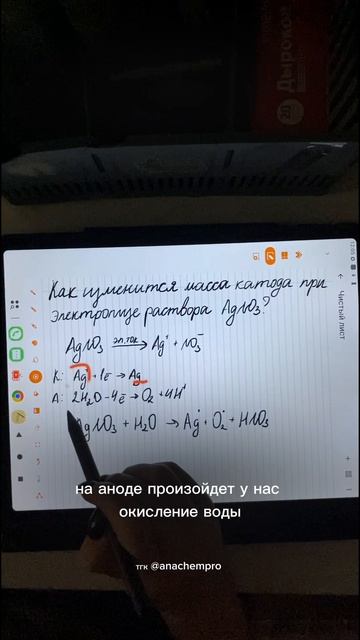 Дырокол
Чистый лист
Как изменится масса катода при
электролизе раствора AgNO₃?
AgNO₃ эл.ток → Ag⁺ + NO₃⁻
К: Ag⁺ + 1ē → Ag
А: 2H₂O - 4ē → O₂ + 4H⁺
AgNO₃ + H₂O → Ag + O₂ + HNO₃
на аноде произойдет у нас
окисление воды
тгк @anachempro